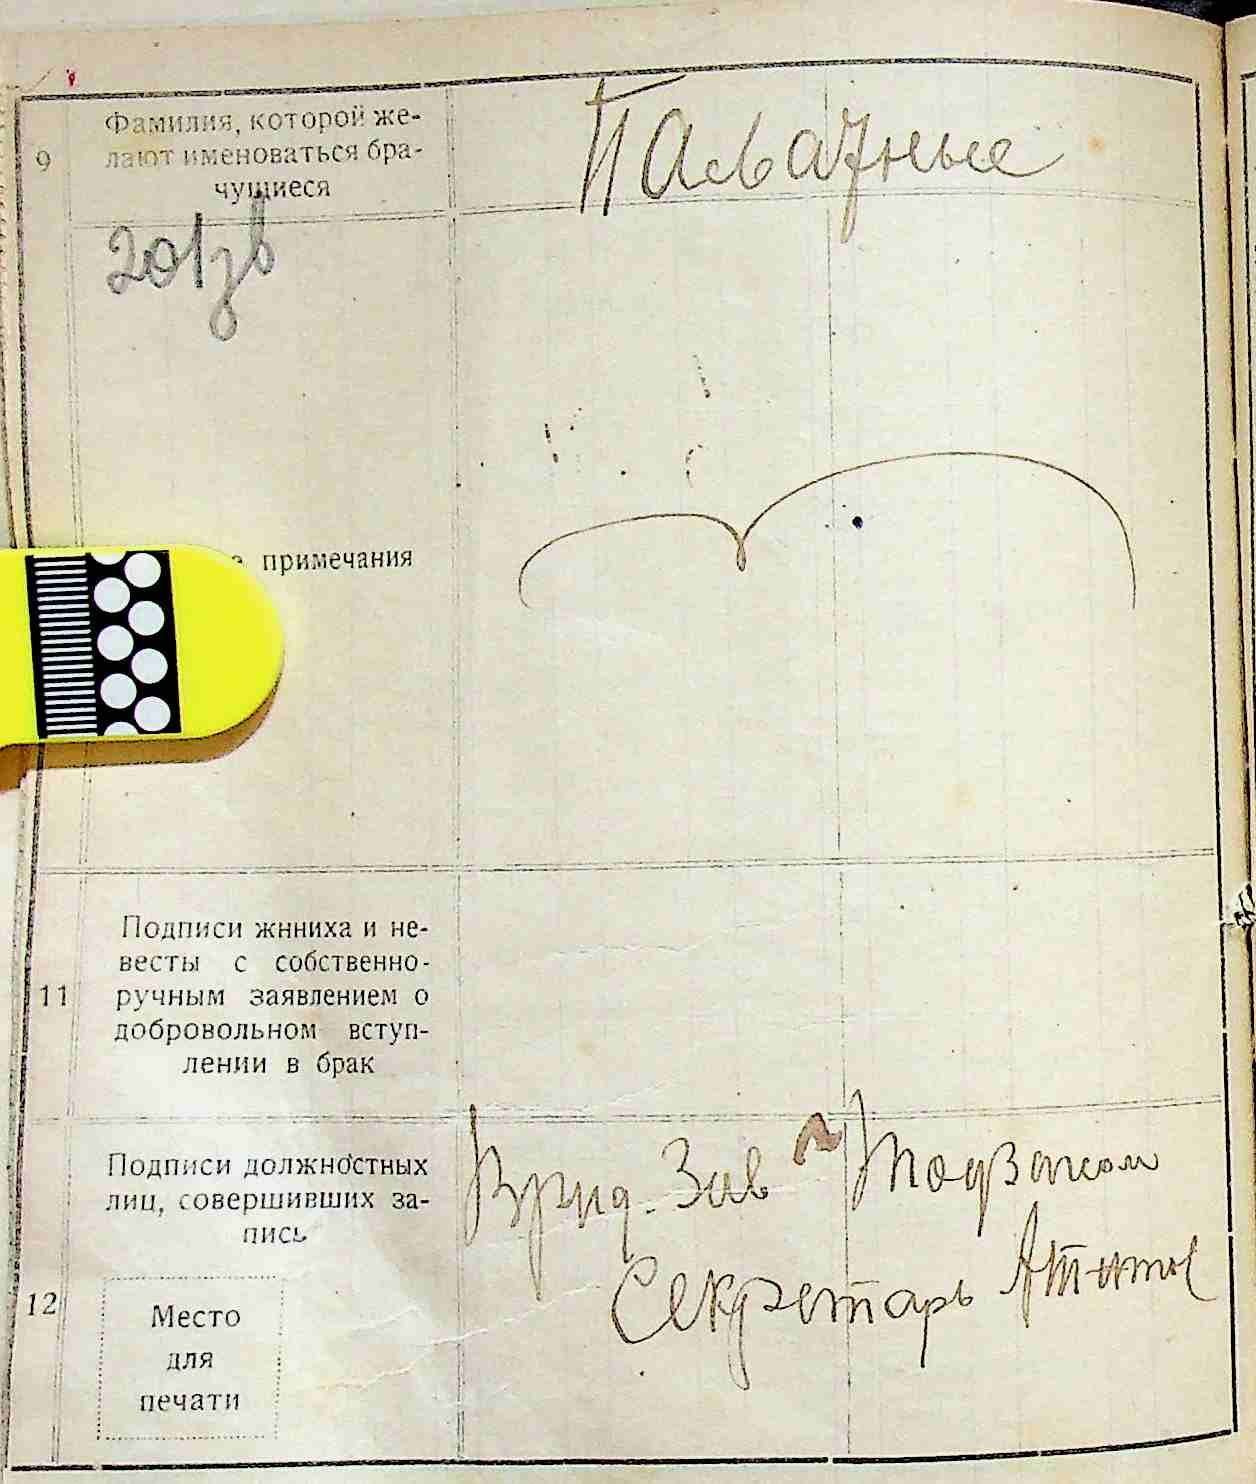 9
Фамилия, которой же-
лают именоваться бра-
чущиеся
примечания
11
Подписи жнниха и не-
весты с собственно-
ручным заявлением о
добровольном вступ-
лении в брак
12
Подписи должностных
лиц, совершивших за-
пись
Врид. Зав
Секретарь
Место
для
печати